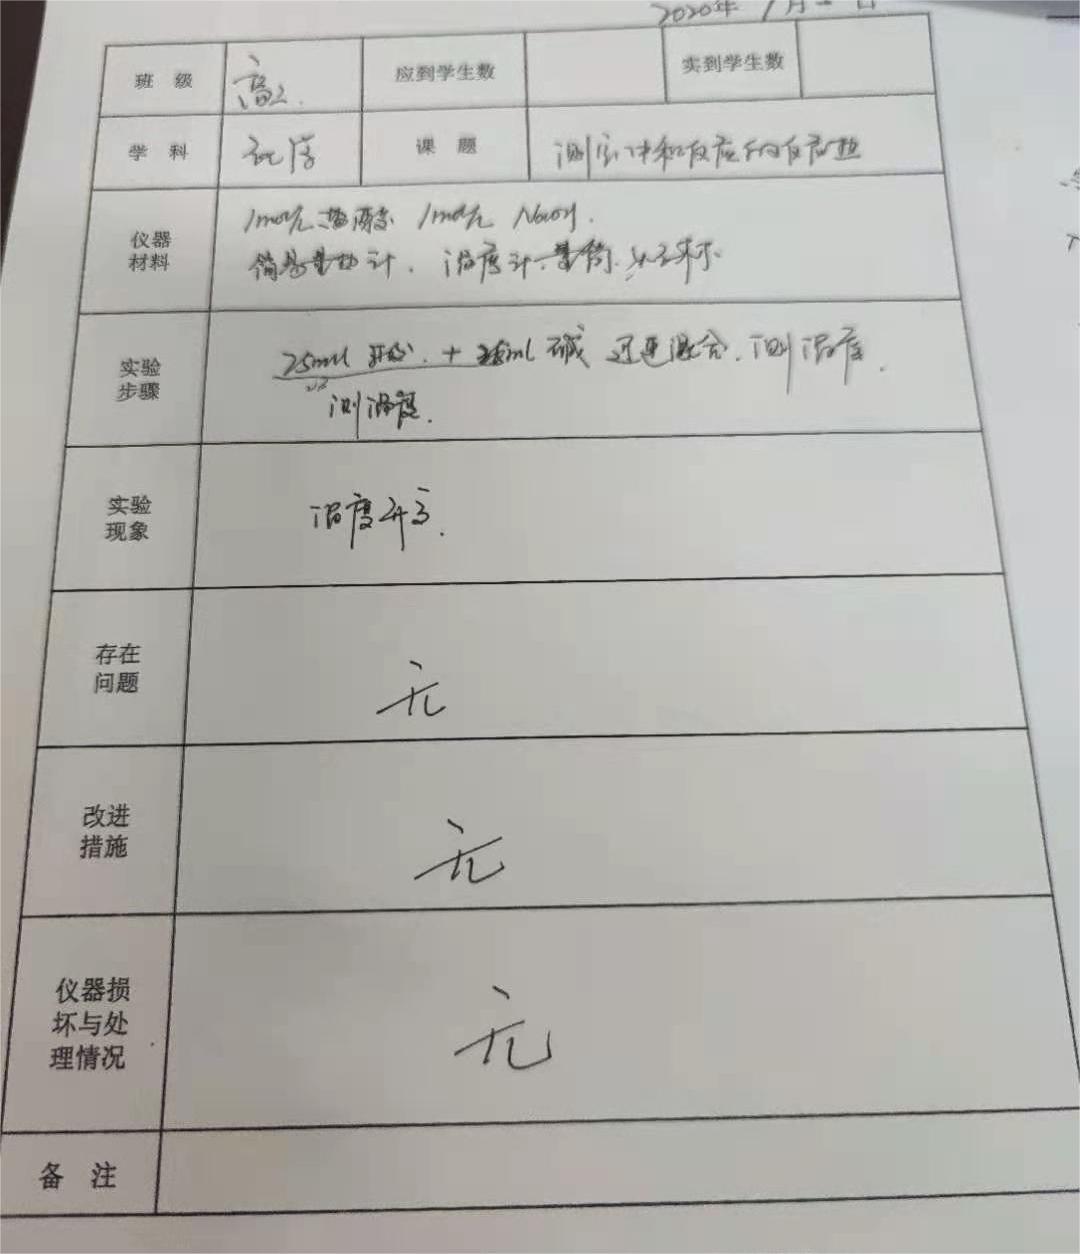 2020年
班 级 高二. 应到学生数 实到学生数
学 科 化学 课 题 测定中和反应的反应热
仪器
材料
1mol/L 盐酸 1mol/L NaOH.
简易量热计. 温度计. 量筒.
实验
步骤
25ml 碱 迅速混合. 测温度.
测温度.
实验
现象
温度升高.
存在
问题
无
改进
措施
无
仪器损
坏与处
理情况
无
备 注